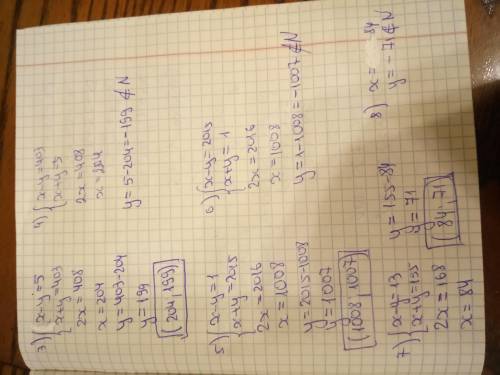 3) { x-y=5
x+y=403
2x=408
x=204
y=403-204
y=199
(204,199)
4) { x-y=403
x+y=5
2x=408
x=204
y=5-204=-199 ∉ N
5) { x-y=1
x+y=2015
2x=2016
x=1008
y=2015-1008
y=1007
(1008,1007)
6) { x-y=2015
x+y=1
2x=2016
x=1008
y=1-1008=-1007 ∉ N
7) { x-y=13
x+y=155
2x=168
x=84
y=155-84
y=71
(84,71)
8) x= 84
y=-71 ∉ N